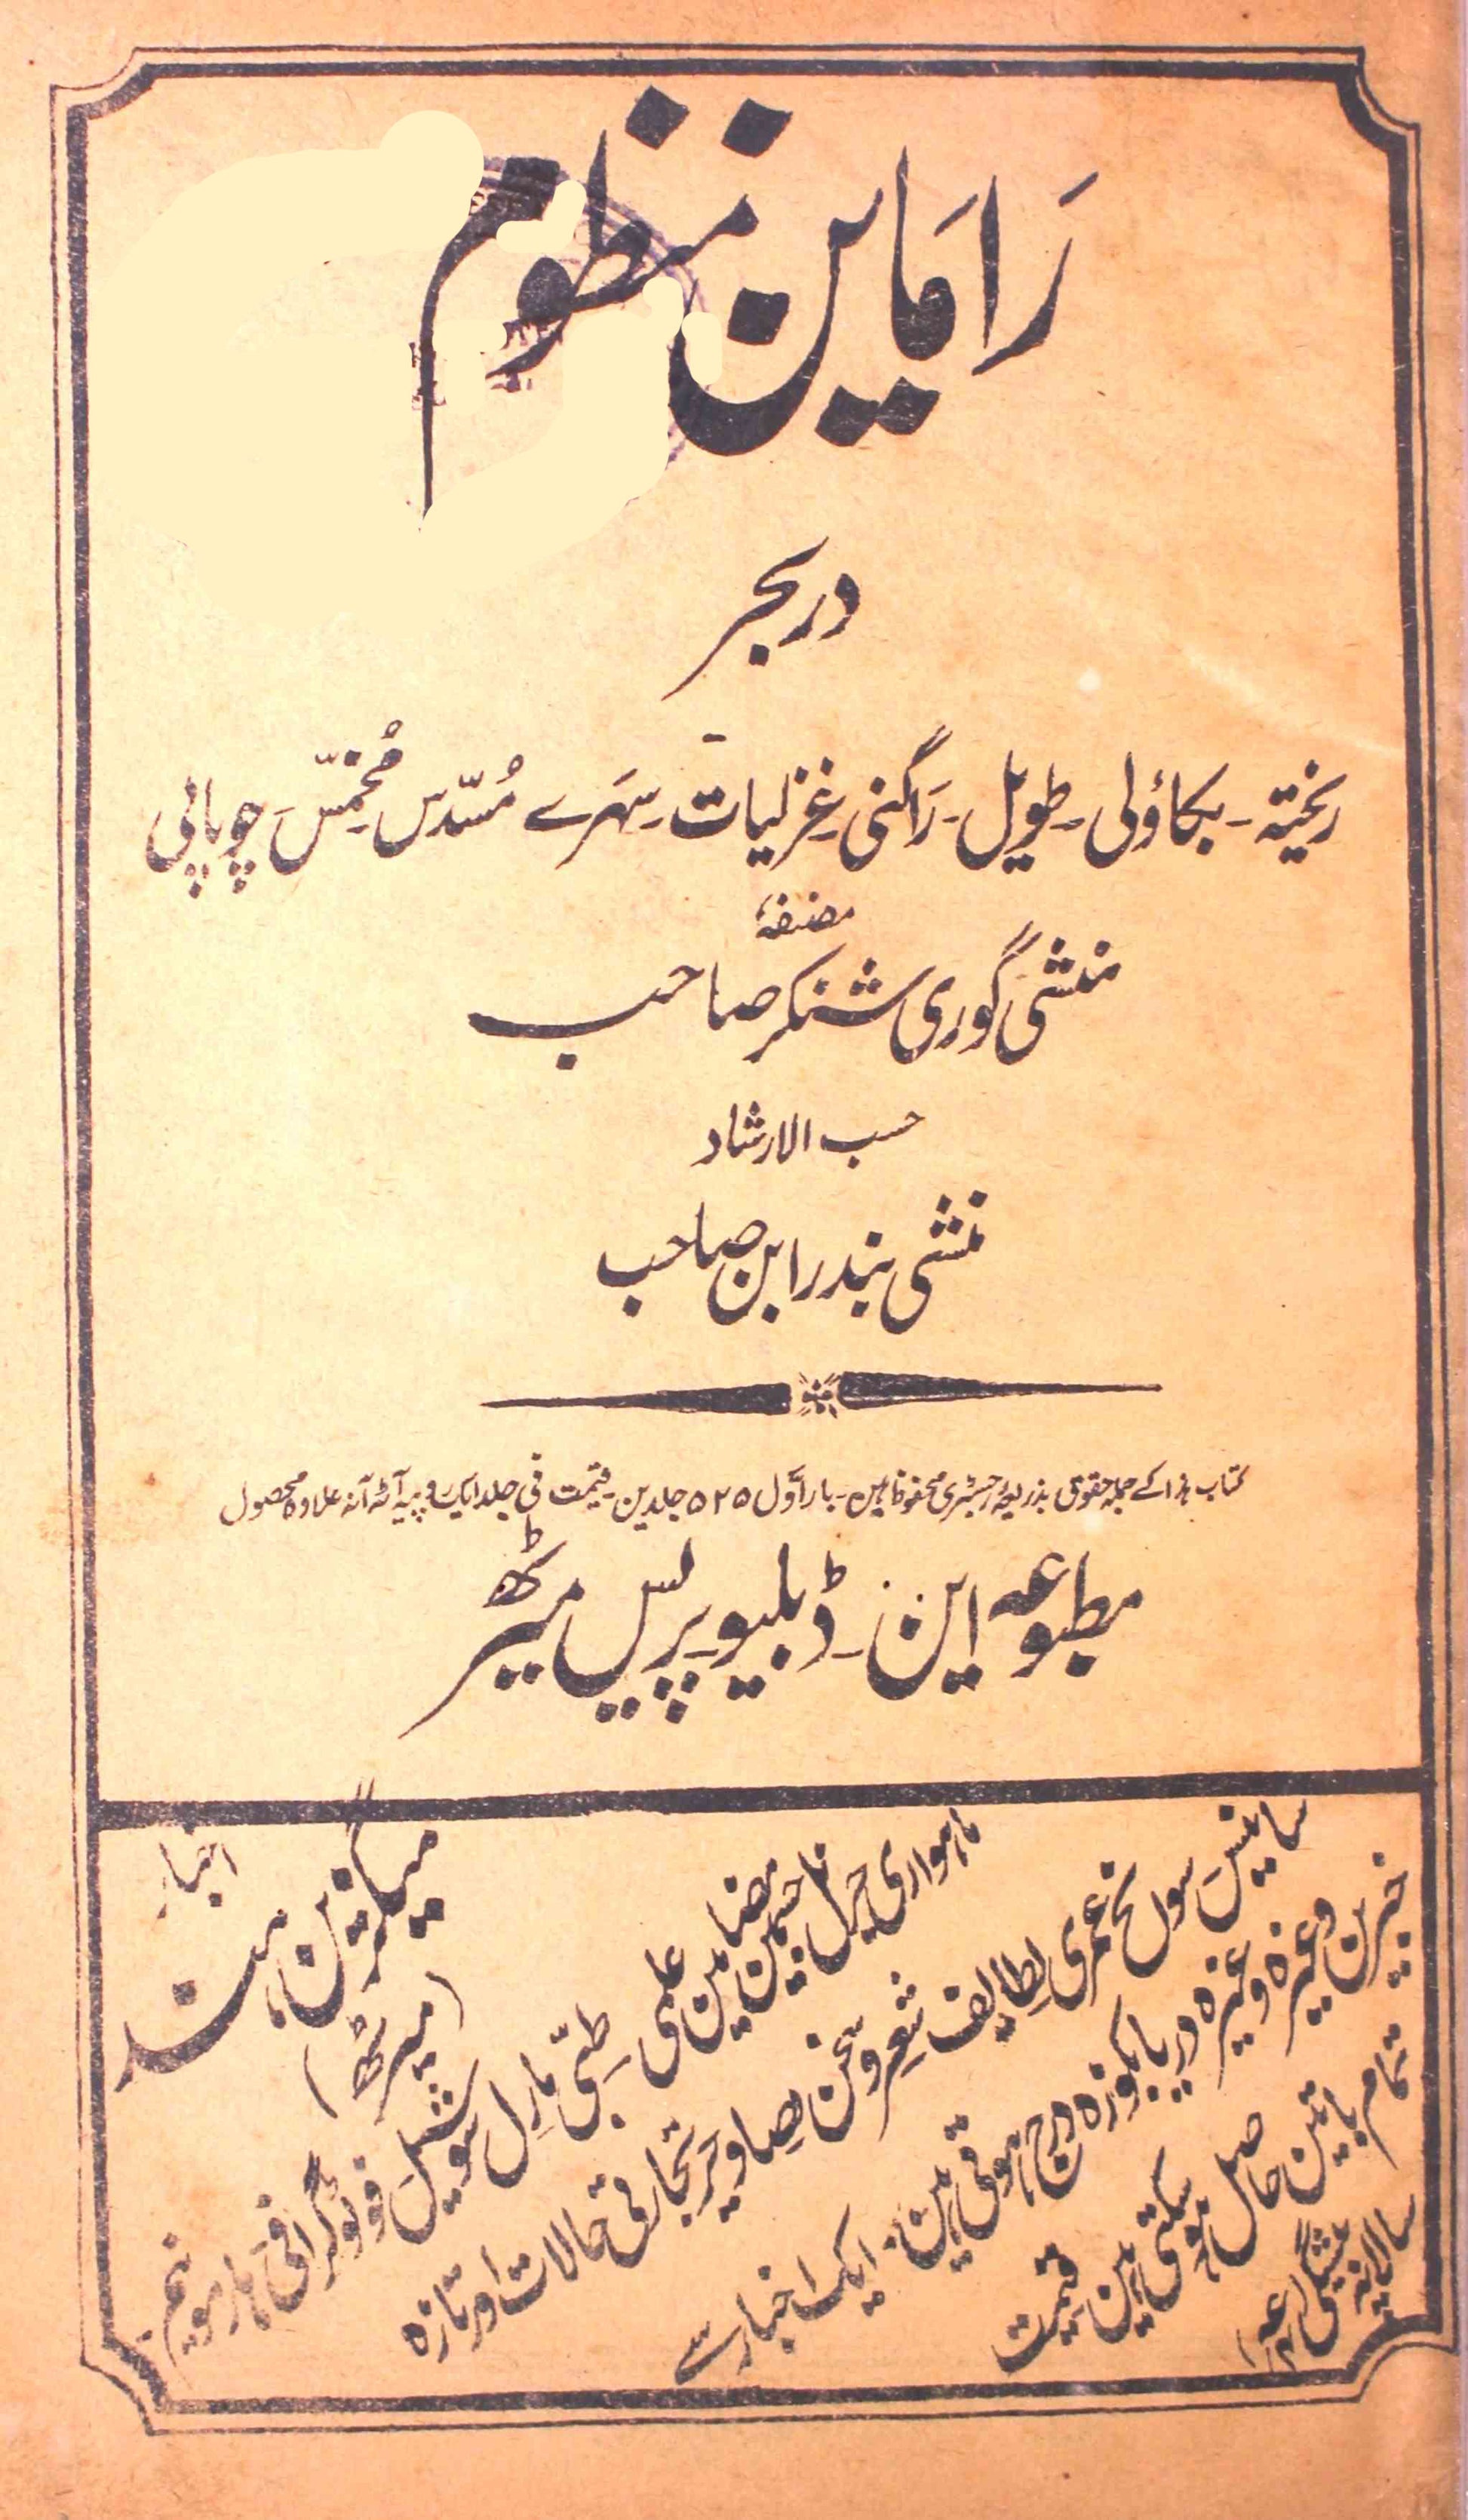 رَامَاین منظوم
در بحر
ریختہ - بکاؤلی - طویل - رَاگنی غزلیات - سِہرے مُسَدّس مُخمّس چوپائی
مصنفۂ
منشی گوری شنکر صاحب
حسب الارشاد
منشی بندرابن صاحب
کتاب ہذا کے جملہ حقوق بذریعہ رجسٹری محفوظ ہین - بار اَوّل ۵۲۵ جلدین - قیمت فی جلد ایکروپیہ آٹھ آنہ علاوہ محصول
مطبوعہ این - ڈبلیو پریس میرٹھ
اخبار
میگزین ہند
(میرٹھ)
ماہواری جرنل جسمین مضامین علمی طبّی مارل سوشیل فوٹوگرافی ہارمونیم
سائینس سوانح عمری لطایف شعر و سخن تصاویر تجارتی حالات اور تازہ
خبرین وغیرہ وغیرہ دریا بکوزہ درج ہوتی ہین ایک اخبار سے
تمام باتین حاصل ہو سکتی ہین قیمت
سالانہ پیشگی